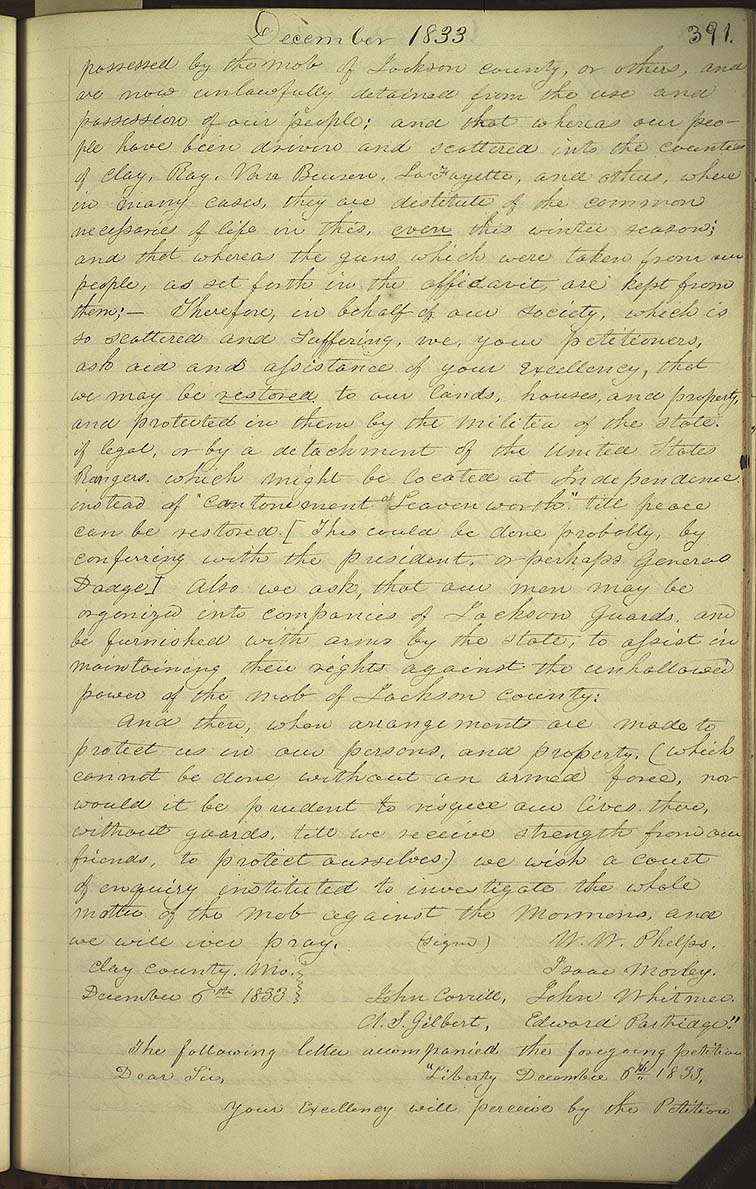 December 1833
391.
possessed by the mob of Jackson county, or others, and
are now unlawfully detained from the use and
possession of our people; and that whereas our peo-
ple have been driven and scattered into the counties
of Clay, Ray, Van Beuren, La Fayette, and others, where
in many cases, they are destitute of the common
necessaries of life in this, even this winter season;
and that whereas the guns which were taken from our
people, as set forth in the affidavit, are kept from
them;— Therefore, in behalf of our society, which is
so scattered and suffering, we, your petitioners,
ask aid and assistance of your Excellency, that
we may be restored to our lands, houses, and property,
and protected in them by the militia of the state.
if legal, or by a detachment of the United States
Rangers. which might be located at Independence
instead of "Cantonement at Leavenworth." till peace
can be restored. [This could be done probably, by
conferring with the president, or perhaps General
Dodge] Also we ask, that our men may be
organized into companies of Jackson guards, and
be furnished with arms by the state, to assist in
maintaining their rights against the unhallowed
power of the mob of Jackson county:
And then, when arrangements are made to
protect us in our persons, and property, (which
cannot be done without an armed force, nor
would it be prudent to risque our lives there,
without guards, till we receive strength from our
friends, to protect ourselves,) we wish a court
of enquiry instituted to investigate the whole
matter of the mob against the Mormons, and
we will ever pray. (signed) W. W. Phelps.
Clay county, Mo. Isaac Morley.
December 6th 1833 John Corrill, John Whitmer.
A. S. Gilbert, Edward Partridge."
The following letter acompanied the foregoing petition
Dear Sir, "Liberty December 6th 1833,
Your Excellency will perceive by the Petition